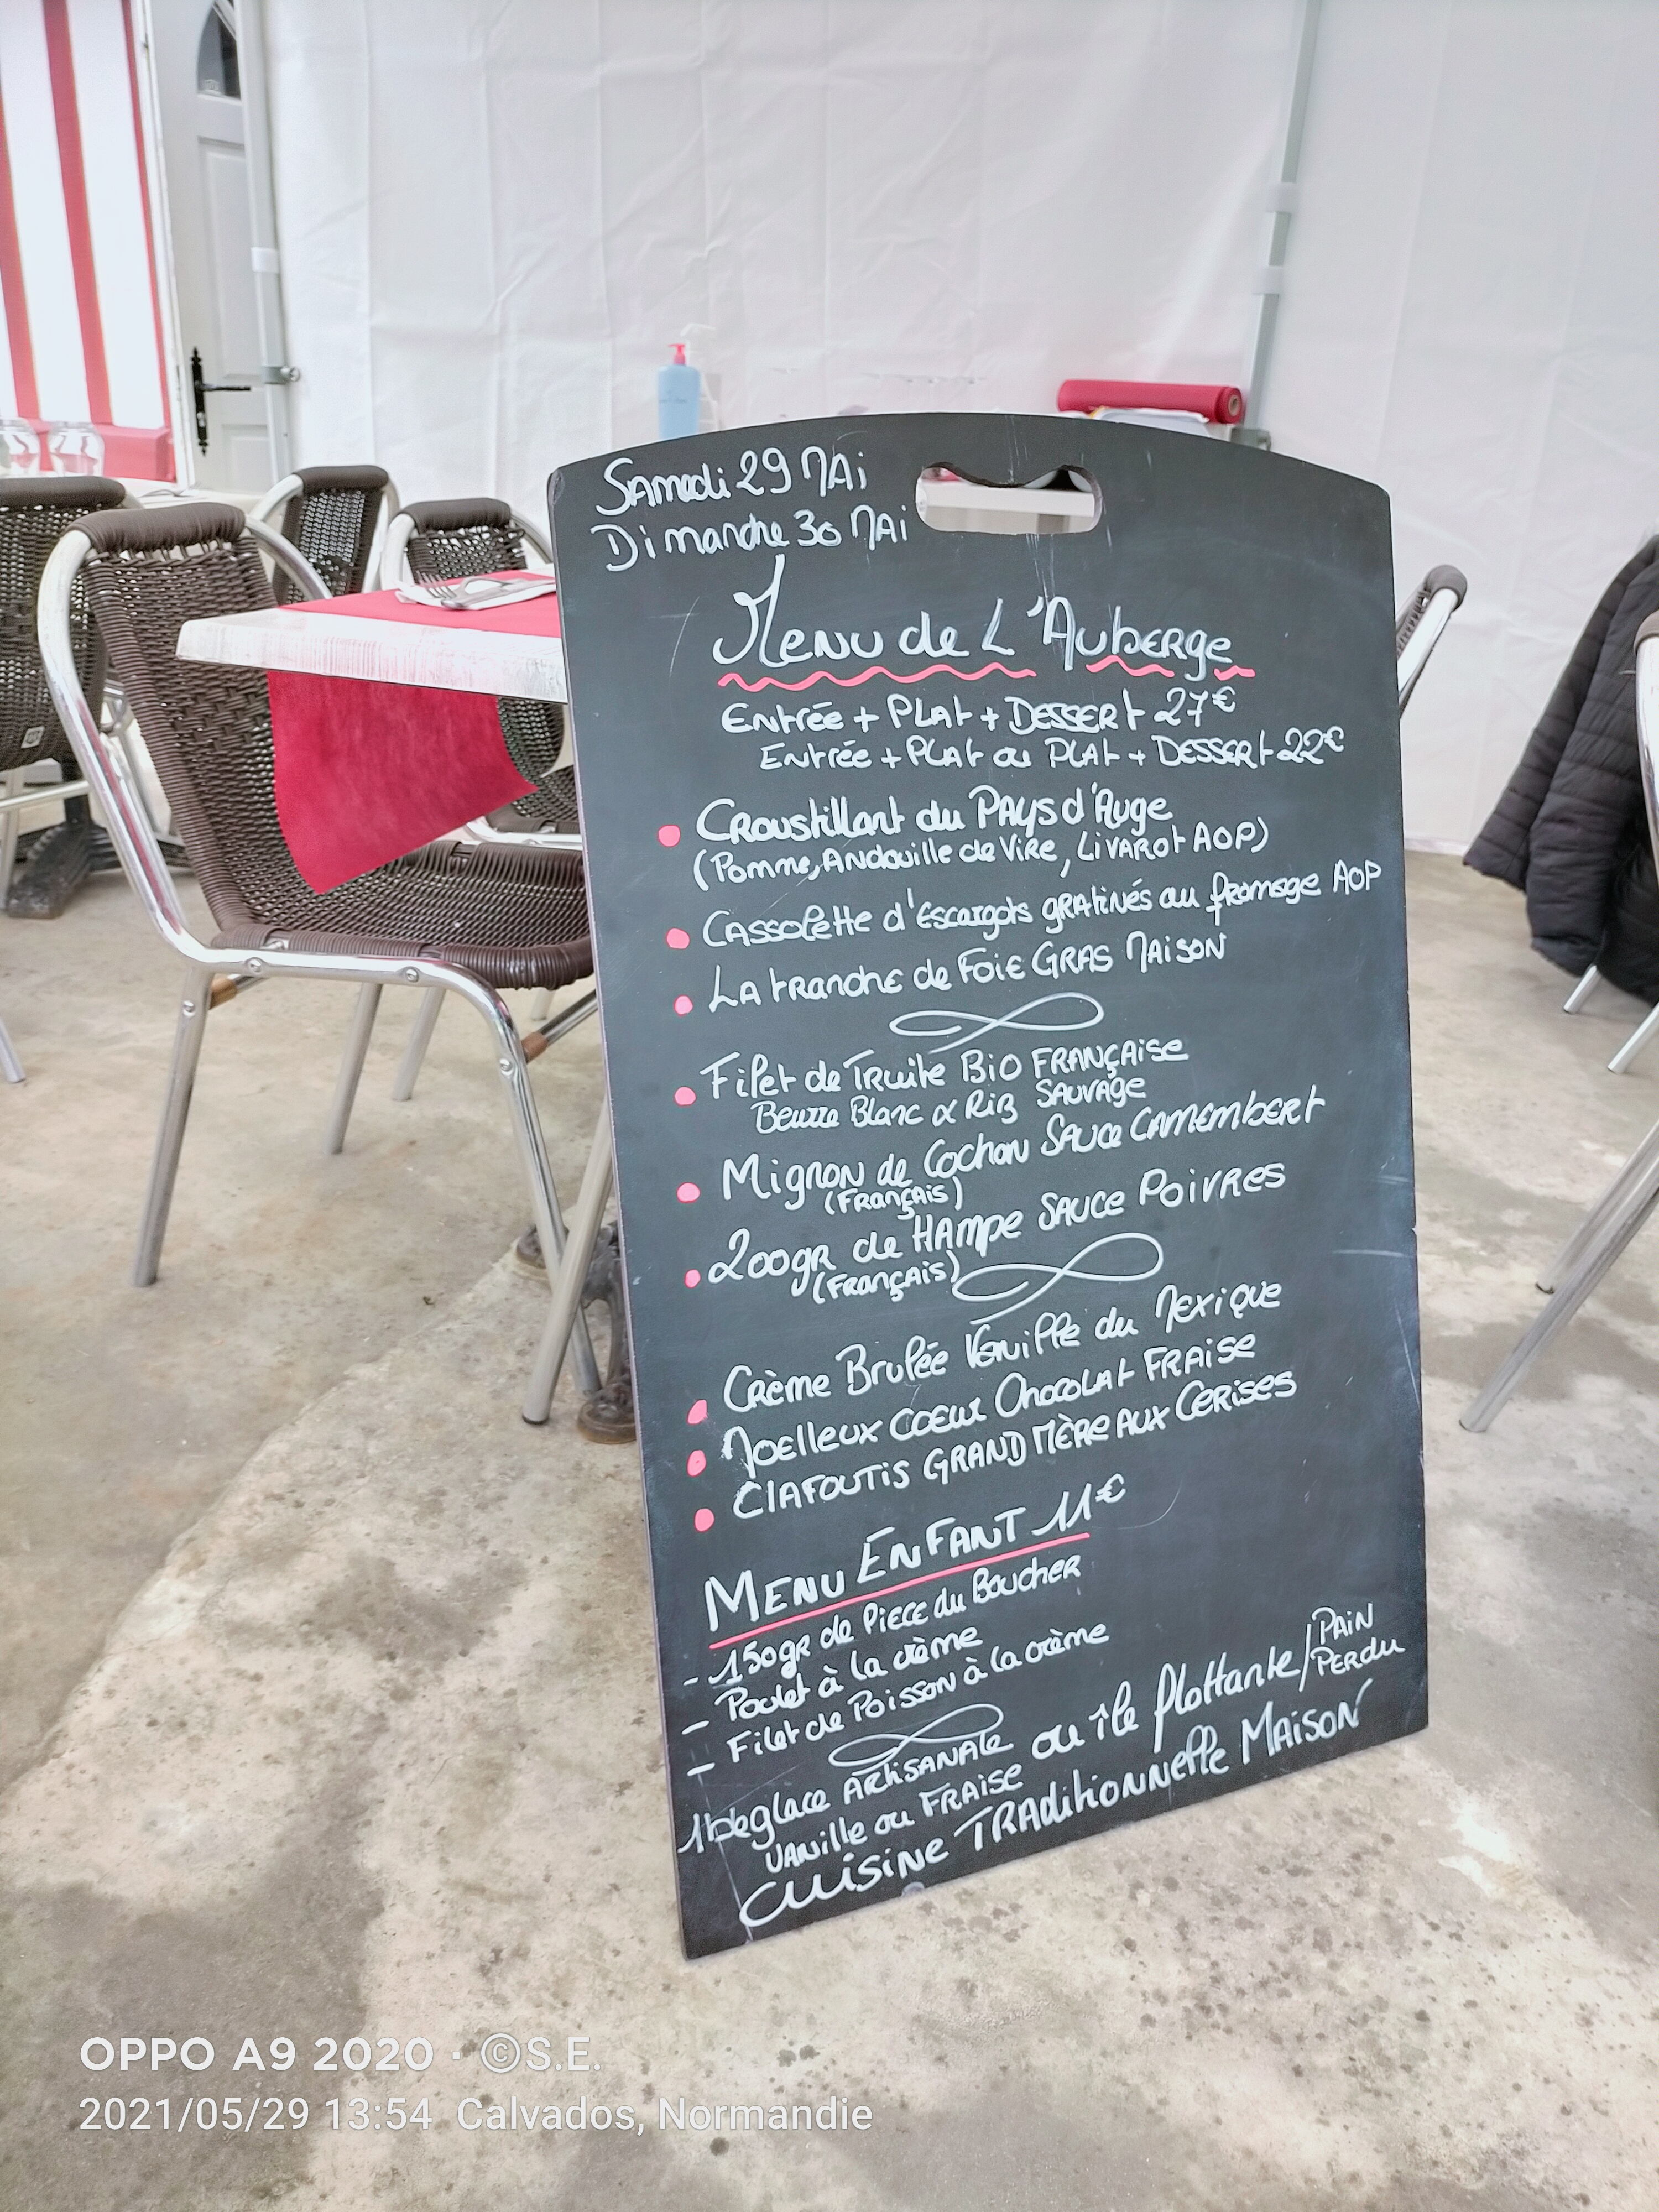 Samedi 29 Mai
Dimanche 30 Mai
Menu de L'Auberge
Entrée + Plat + Dessert 27€
Entrée + Plat ou Plat + Dessert 22€
Croustillant du Pays d'Auge
(Pomme, Andouille de Vire, Livarot AOP)
Cassolette d'Escargots gratinés au fromage AOP
La tranche de Foie Gras Maison
Filet de Truite Bio Française
Beurre Blanc & Riz Sauvage
Mignon de Cochon Sauce Camembert
(Français)
200gr de Hampe Sauce Poivres
(Français)
Crème Brulée Vanille du Mexique
Moelleux coeur Chocolat Fraise
Clafoutis Grand Mère aux Cerises
Menu Enfant 11€
- 150gr de Piece du Boucher
- Poulet à la crème
- Filet de Poisson à la crème
glace Artisanale ou île flottante/Pain Perdu
Vanille ou Fraise
Cuisine Traditionnelle Maison
OPPO A9 2020 · ©S.E.
2021/05/29 13:54 Calvados, Normandie